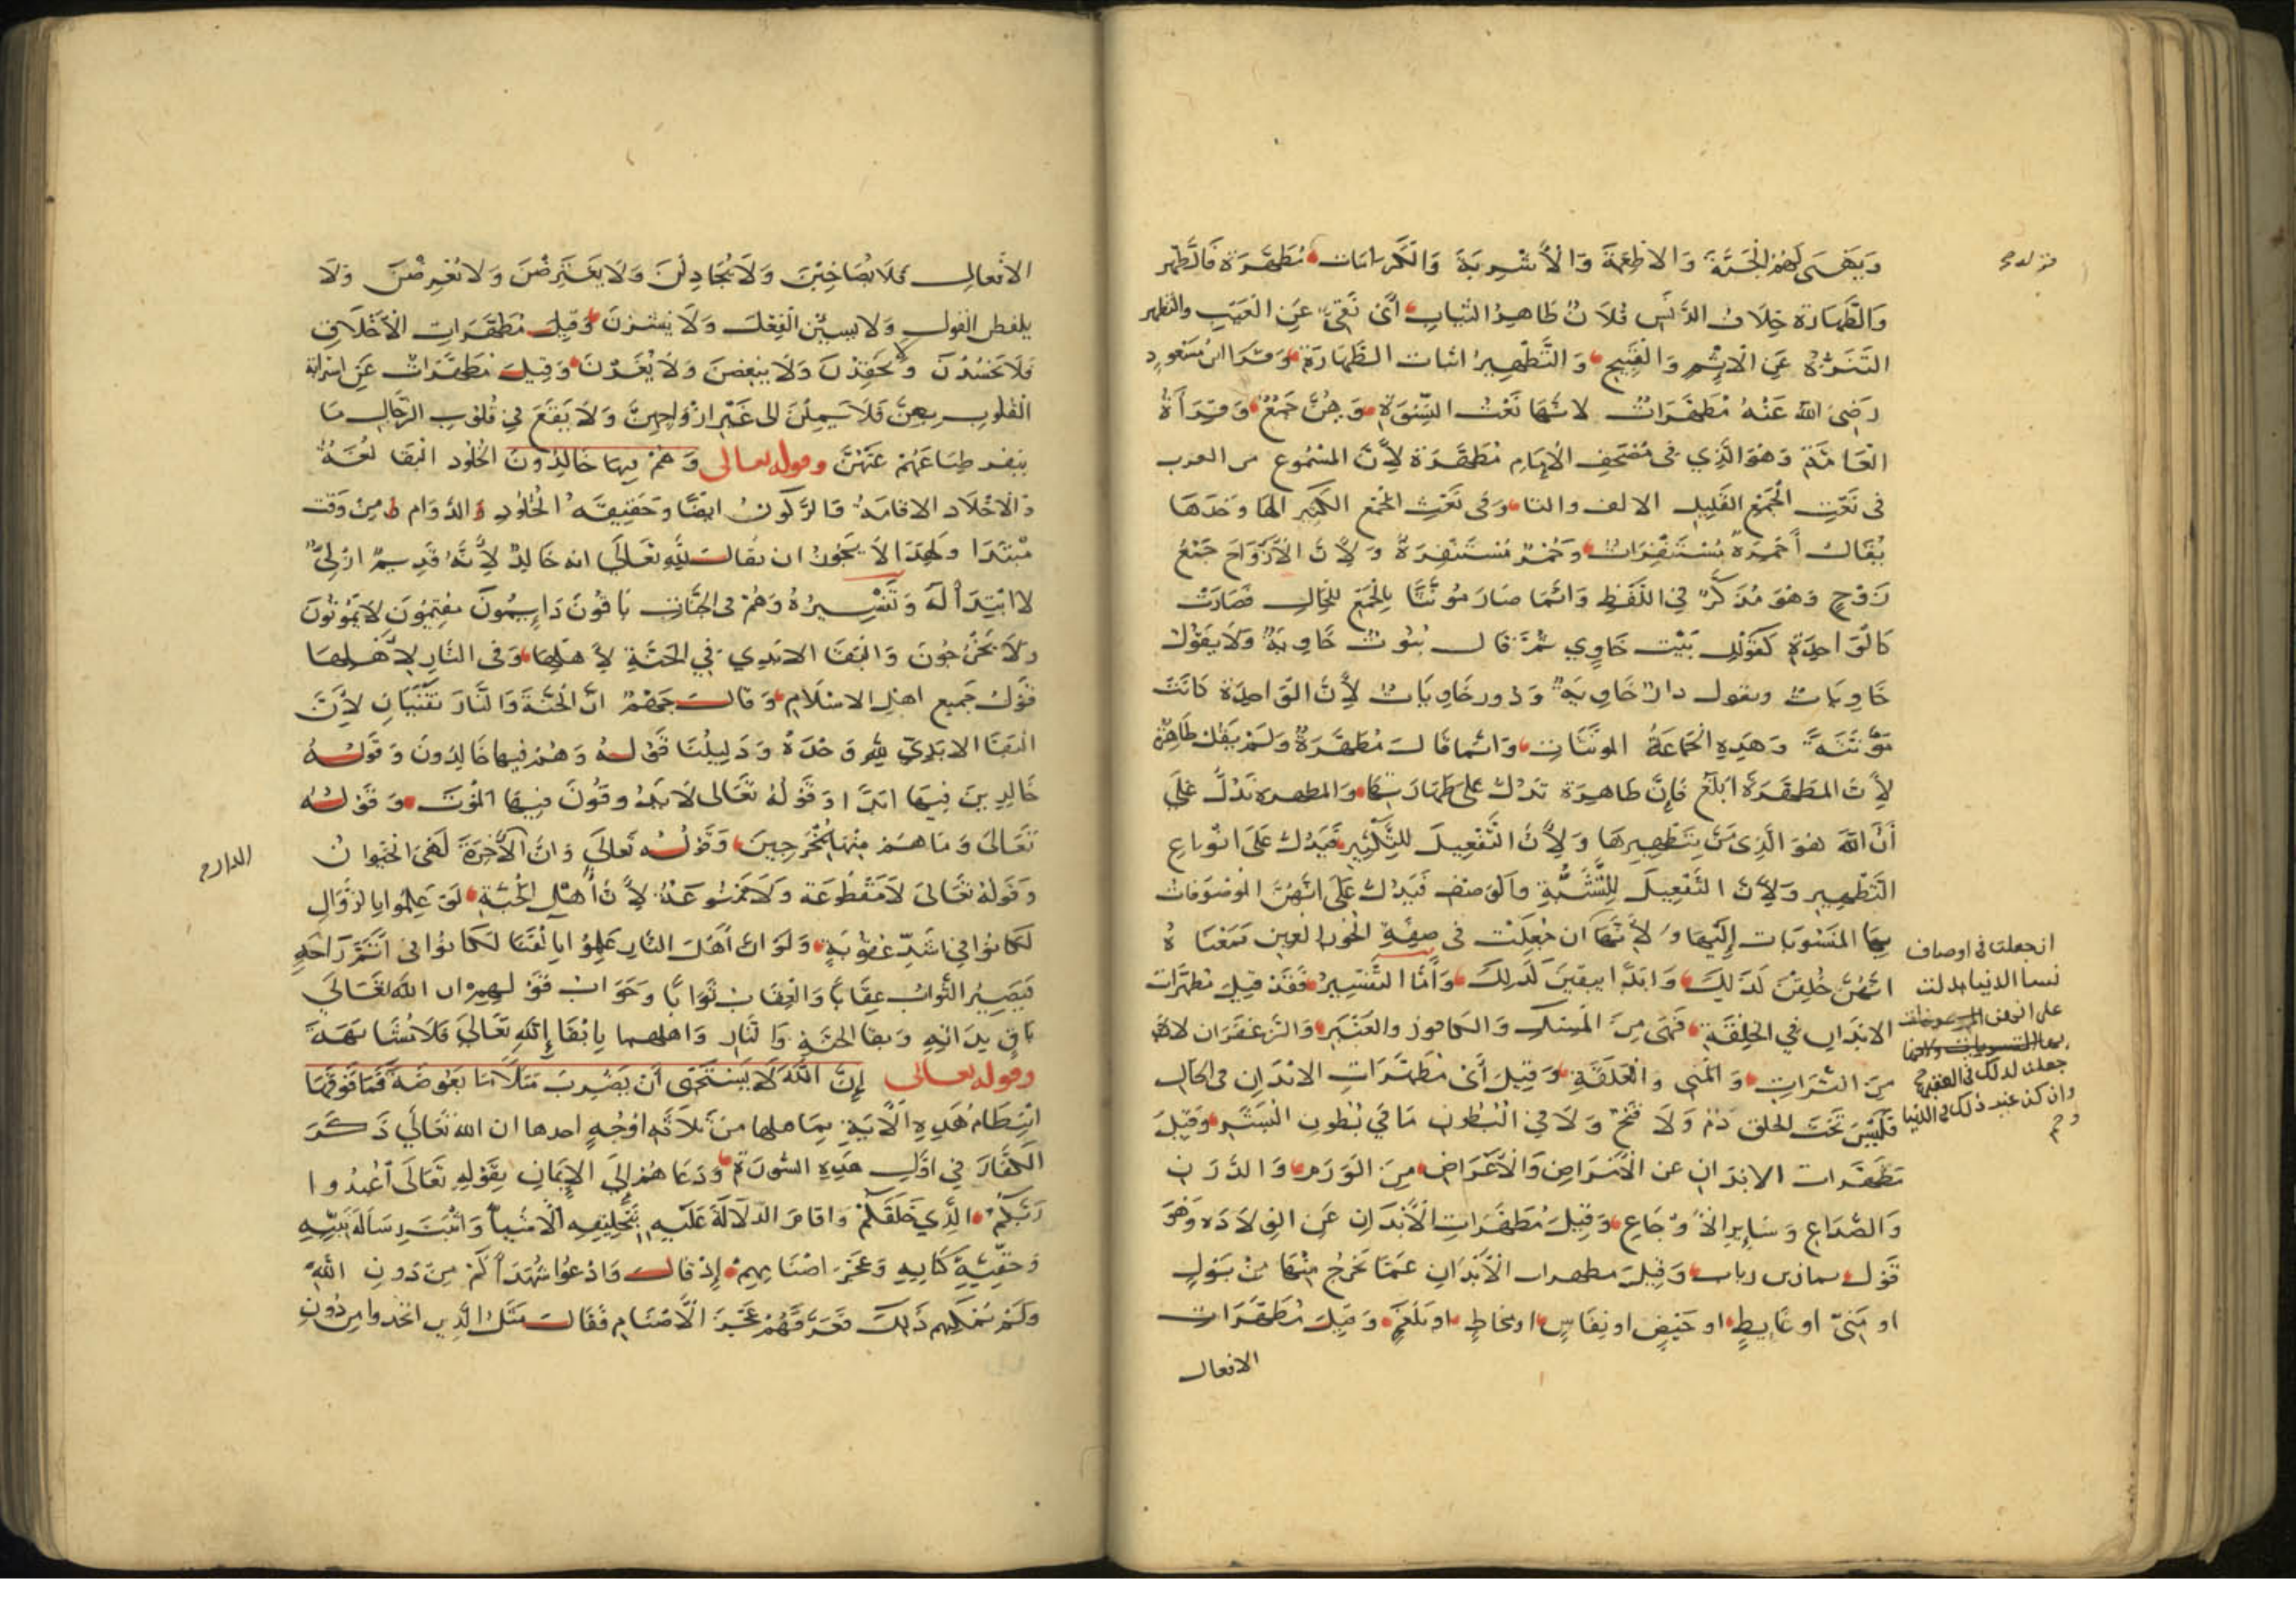 وَيَهْنَى لَهُمُ الْجَنَّةَ وَالاطعِمَةَ وَالْأَشْرِبَةَ وَالْكَرَامَات مُطَهَّرَة فَالطُّهْر
وَالطَّهَارَة خِلَافُ الدَّنَسِ فُلَانٌ طَاهِرُ الثِّيَابِ أَيْ نَقِيٌّ عَنِ الْعَيْبِ والتطهر
التَنَزُّهُ عَنِ الْإِثْمِ وَالْقَبِيحِ وَالتَّطْهِيرُ اثبات الطَّهَارَةِ وَقَرَا ابْنُ مَسْعُودٍ
رَضِيَ اللهُ عَنْهُ مُطَهَّرَاتٌ لانَّهَا نَعْتُ النِّسْوَةِ وَهُنَّ جَمْعٌ وَقِرَاةُ
الْعَامَّةِ وَهُوَ الَّذِي فى مُصْحَفِ الْإِمَامِ مُطَهَّرَة لِأَنَّ الْمَسْمُوعَ من العرب
فى نَعْتِ الْجَمْعِ الْقَلِيلِ الالف والتا وَفى نَعْتِ الْجَمْعِ الْكَثِيرِ الها وَحْدَهَا
يُقَالُ أَحْمِرَةٌ مُسْتَنْفِرَاتٌ وَحُمُرٌ مُسْتَنْفِرَةٌ وَلِأَنَّ الْأَزْوَاجَ جَمْعُ
زَوْجٍ وَهُوَ مُذَكَّرٌ فِي اللَّفْظِ وَانَّمَا صَارَ مُوَنَّثًا بِالْجَمْعِ للحال فَصَارَتْ
كَالْوَاحِدَةِ كَقَوْلِكَ بَيْت خَاوِي ثُمَّ قال بُيُوتٌ خَاوِيَةٌ وَلَا يَقُولُ
خَاوِيَاتٌ ويقول دارٌ خَاوِيَةٌ وَدُور خَاوِيَاتٌ لِأَنَّ الْوَاحِدَةَ كَانَتْ
مُؤَنَّثَةً وَهَذِهِ الْجَمَاعَةُ الموَنَّثَاتِ وَانَّمَا قَالَ مُطَهَّرَةٌ وَلَمْ يَقُلْ طَاهِرَةٌ
لِأَنَّ الْمُطَهَّرَةَ ابْلَغُ فَإِنَّ طَاهِرَة تَدُلُّ عَلَى طَهَارَتِهَا وَالمطهرة تَدُلُّ عَلَى
أَنَّ اللهَ هُوَ الَّذِى مَنَّ بِتَطْهِيرِهَا وَلِأَنَّ التَّفْعِيلَ لِلتَّكْثِيرِ فَيَدُلُّ عَلَى انْوَاعِ
التَّطْهِيرِ وَلِأَنَّ التَّفْعِيلَ لِلنِّسْبَةِ وَالْوَصْفِ فَيَدُلُّ عَلَى انَّهُنَّ الْمَوْصُوفَات
بِهَا الْمَنْسُوبَات إِلَيْهَا وَلِأَنَّهَا ان جُعِلَتْ فى صِفَةِ الْحُورِ الْعِينِ فَمَعْنَاهُ
انَّهُنَّ خُلِقْنَ كَذَلِكَ وَابَدًا يَبْقَيْنَ كَذَلِكَ وَأَمَّا التَّفْسِيرُ فَقَدْ قِيلَ مُطَهَّرَات
الابْدَانِ فِي الْخِلْقَةِ فَهِىَ مِنَ الْمِسْكِ وَالْكَافُورِ وَالْعَنْبَرِ وَالزَّعْفَرَانِ لا
مِنَ التُّرَابِ وَالْمَنِي وَالْعَلَقَةِ وَقِيلَ أَيْ مُطَهَّرَاتِ الابْدَانِ فى الحَال
فَلَيْسَ تَحْتَ الحلق دَمٌ وَلَا قَيْحٌ وَلَا فِي الْبُطُونِ مَا فِي بُطُونِ الْبَشَرِ وَقِيلَ
مُطَهَّرَات الابْدَانِ عن الْأَمْرَاضِ وَالْأَعْرَاضِ مِنَ الْوَرَمِ وَالدَّرَنِ
وَالصُّدَاعِ وَسَايِرِ الْأَوْجَاعِ وَقِيلَ مُطَهَّرَاتِ الْأَبْدَانِ عَنِ الْوِلَادَة وَهُوَ
قَوْلُ يمان بن رباب وَقِيلَ مطهرات الْأَبْدَانِ عَمَّا يَخْرُجُ مِنْهَا مِنْ بَوْلٍ
او مَنِيٍّ او غَايِطٍ او حَيْضٍ او نِفَاسٍ او مُخَاطٍ او بَلْغَمٍ وَقِيلَ مُطَهَّرَات
الافعال
قوله
ان جعلت فى اوصاف
نسا الدنيا دلت
على انهن
جعلن كذلك فى العقبى
وان كن عند ذلك فى الدنيا
الأَفْعَالِ فَلَا يُصَاخِبْنَ وَلَا يُجَادِلْنَ وَلَا يَعْتَرِضْنَ وَلَا يُعْرِضْنَ وَلَا
يلفظن القول وَلَا يسيئن الْفِعْلَ وَلَا وَقِيلَ مُطَهَّرَاتِ الْأَخْلَاقِ
فَلَا يَحْسُدْنَ وَلَا يَحْقِدْنَ وَلَا يبغضن وَلَا يَغْدِرْنَ وَقِيلَ مُطَهَّرَاتٌ عَنِ
الْقُلُوبِ بِهِنَّ فَلَا يَمِلْنَ الى غَيْرِ ازْوَاجِهِنَّ وَلَا يَقَعُ فِي قُلُوبِ الرِّجَالِ مَا
ينفر طِبَاعَهُمْ عَنْهُنَّ وقوله تعالى وَهُمْ فِيهَا خَالِدُونَ الْخُلُود الْبَقَا لُغَةً
وَالْاخْلَاد الاقامَةُ وَالرُّكُونُ ايضًا وَحَقِيقَةُ الْخُلُودِ وَالدَّوَام مِنْ وَقْت
مُبْتَدَا وَلِهَذَا لَا يَجُوزُ ان يُقَالَ لِلَّهِ تَعَالَى انه خَالِدٌ لِأَنَّهُ قَدِيمٌ ازَلِيٌّ
لا ابْتِدَأَ لَهُ وَتَفْسِيرُهُ وَهُمْ فى الْجَنَّاتِ بَاقُونَ دَايِمُونَ مُقِيمُونَ لَا يَمُوتُونَ
وَلَا يَخْرُجُونَ وَالْبَقَا الابَدِي فِي الْجَنَّةِ لِأَهْلِهَا وَفى النَّارِ لِأَهْلِهَا
قَوْلُ جَمِيعِ اهْلِ الاسْلَامِ وَقَالَ جَهْمٌ انَّ الْجَنَّةَ وَالنَّارَ تَفْنَيَانِ لِأَنَّ
الْبَقَا الابَدِيَّ لِلَّهِ وَحْدَهُ وَدَلِيلُنَا قَوْلُهُ وَهُمْ فِيهَا خَالِدُونَ وَقَوْلُهُ
خَالِدِينَ فِيهَا ابَدًا وَقَوْلُهُ تَعَالَى لَا يَذُوقُونَ فِيهَا الْمَوْتَ وَقَوْلُهُ
تَعَالَى وَمَا هُمْ مِنْهَا بِمُخْرَجِينَ وَقَوْلُهُ تَعَالَى وَانَّ الدار الْأَخِرَةَ لَهِيَ الْحَيَوَانُ
وَقَوْلُهُ تَعَالَى لَا مَقْطُوعَة وَلَا مَمْنُوعَة لِأَنَّ أَهْلَ الْجَنَّةِ لَوْ عَلِمُوا بِالزَّوَالِ
لَكَانُوا فِي اشَدِّ عُقُوبَةٍ وَلَوْ انَّ أَهْلَ النَّارِ عَلِمُوا بِالْفَنَا لَكَانُوا فى اتَمِّ رَاحَةٍ
فَيَصِيرُ الثَّوَابُ عِقَابًا وَالْعِقَابُ ثَوَابًا وَجَوَابُ قَوْلِهِمْ ان اللهَ تَعَالَى
بَاقٍ بِذَاتِهِ وَبقا الجنَّةِ وَالنَّارِ وَاهلهما بِابْقَا اللهِ تَعَالَى فَلَا مُشَابَهَةَ
وقوله تعالى إِنَّ اللَّهَ لَا يَسْتَحْيِى أَنْ يَضْرِبَ مَثَلًا مَا بَعُوضَةً فَمَا فَوْقَهَا
انْتِظَامُ هَذِهِ الْآيَةِ بِمَا قبلها مِنْ ثَلَاثَةِ اوْجُهٍ احدها ان الله تَعَالَى ذَكَرَ
الْكُفَّارَ فِي اوَّلِ هَذِهِ السُّورَةِ وَدَعَاهُمْ إِلَى الْإِيمَانِ بِقَوْلِهِ تَعَالَى اعْبُدُوا
رَبَّكُمُ الَّذِي خَلَقَكُمْ وَاقَامَ الدَّلَالَةَ عَلَيْهِ بِتَخْلِيقِهِ الْأَشْيَا وَاثْبَتَ رِسَالَةَ نَبِيِّهِ
وَحَقِّيَّةَ كِتَابِهِ وَعَجْزَ اصْنَامِهِمْ إِذْ قَالَ وَادْعُوا شُهَدَاكُمْ مِنْ دُونِ اللهِ
وَلَمْ يُمْكِنْهُمْ ذَلِكَ فَعَرَّفَهُمْ عَجْزَ الْأَصْنَامِ فَقَالَ مَثَلُ الَّذِينَ اتخذوا مِنْ دُونِ
الدار